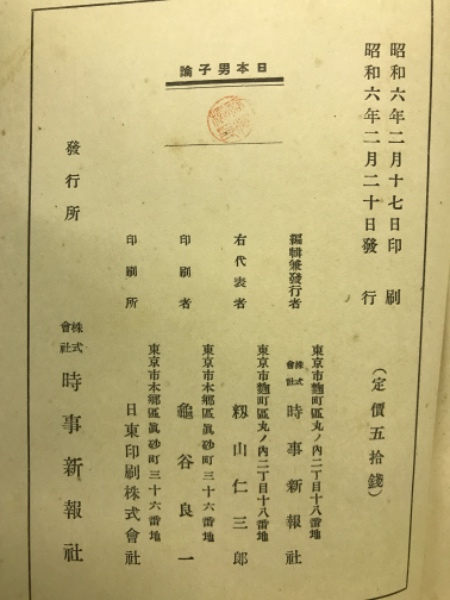 昭和六年二月十七日印刷
昭和六年二月二十日發行
（定價五拾錢）
日本男子論
編輯兼發行者
東京市麴町區丸ノ內二丁目十八番地
株式會社 時事新報社
右代表者
東京市麴町區丸ノ內二丁目十八番地
籾山仁三郎
印刷者
東京市本鄉區眞砂町三十六番地
龜谷良一
印刷所
東京市本鄉區眞砂町三十六番地
日東印刷株式會社
發行所
株式會社 時事新報社